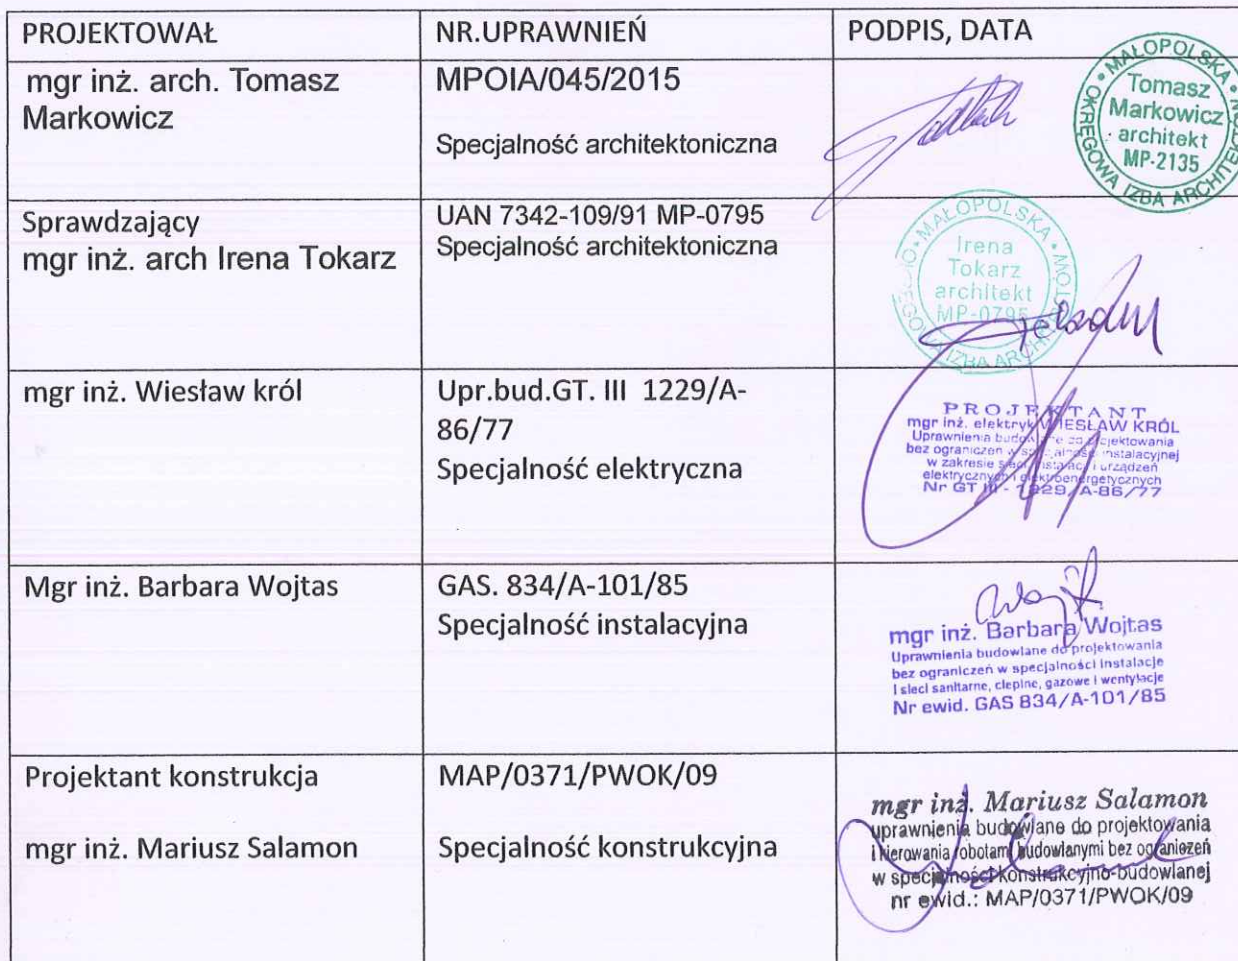 PROJEKTOWAŁ
NR.UPRAWNIEŃ
PODPIS, DATA
mgr inż. arch. Tomasz
Markowicz
MPOIA/045/2015
Specjalność architektoniczna
MAŁOPOLSKA
OKRĘGOWA IZBA
Tomasz
Markowicz
architekt
MP-2135
Sprawdzający
mgr inż. arch Irena Tokarz
UAN 7342-109/91 MP-0795
Specjalność architektoniczna
MAŁOPOLSKA
IZBA
Irena
Tokarz
architekt
MP-0795
mgr inż. Wiesław król
Upr.bud.GT. III 1229/A-
86/77
Specjalność elektryczna
PROJEKTANT
mgr inż. elektryk WIESŁAW KRÓL
Uprawnienia budowlane do projektowania
bez ograniczeń w specjalności instalacyjnej
w zakresie sieci, instalacji i urządzeń
elektrycznych i elektroenergetycznych
Nr GT III - 1229/A-86/77
Mgr inż. Barbara Wojtas
GAS. 834/A-101/85
Specjalność instalacyjna
mgr inż. Barbara Wojtas
Uprawnienia budowlane do projektowania
bez ograniczeń w specjalności instalacje
i sieci sanitarne, cieplne, gazowe i wentylacje
Nr ewid. GAS 834/A-101/85
Projektant konstrukcja
mgr inż. Mariusz Salamon
MAP/0371/PWOK/09
Specjalność konstrukcyjna
mgr inż. Mariusz Salamon
uprawnienia budowlane do projektowania
i kierowania robotami budowlanymi bez ograniczeń
w specjalności konstrukcyjno-budowlanej
nr ewid.: MAP/0371/PWOK/09